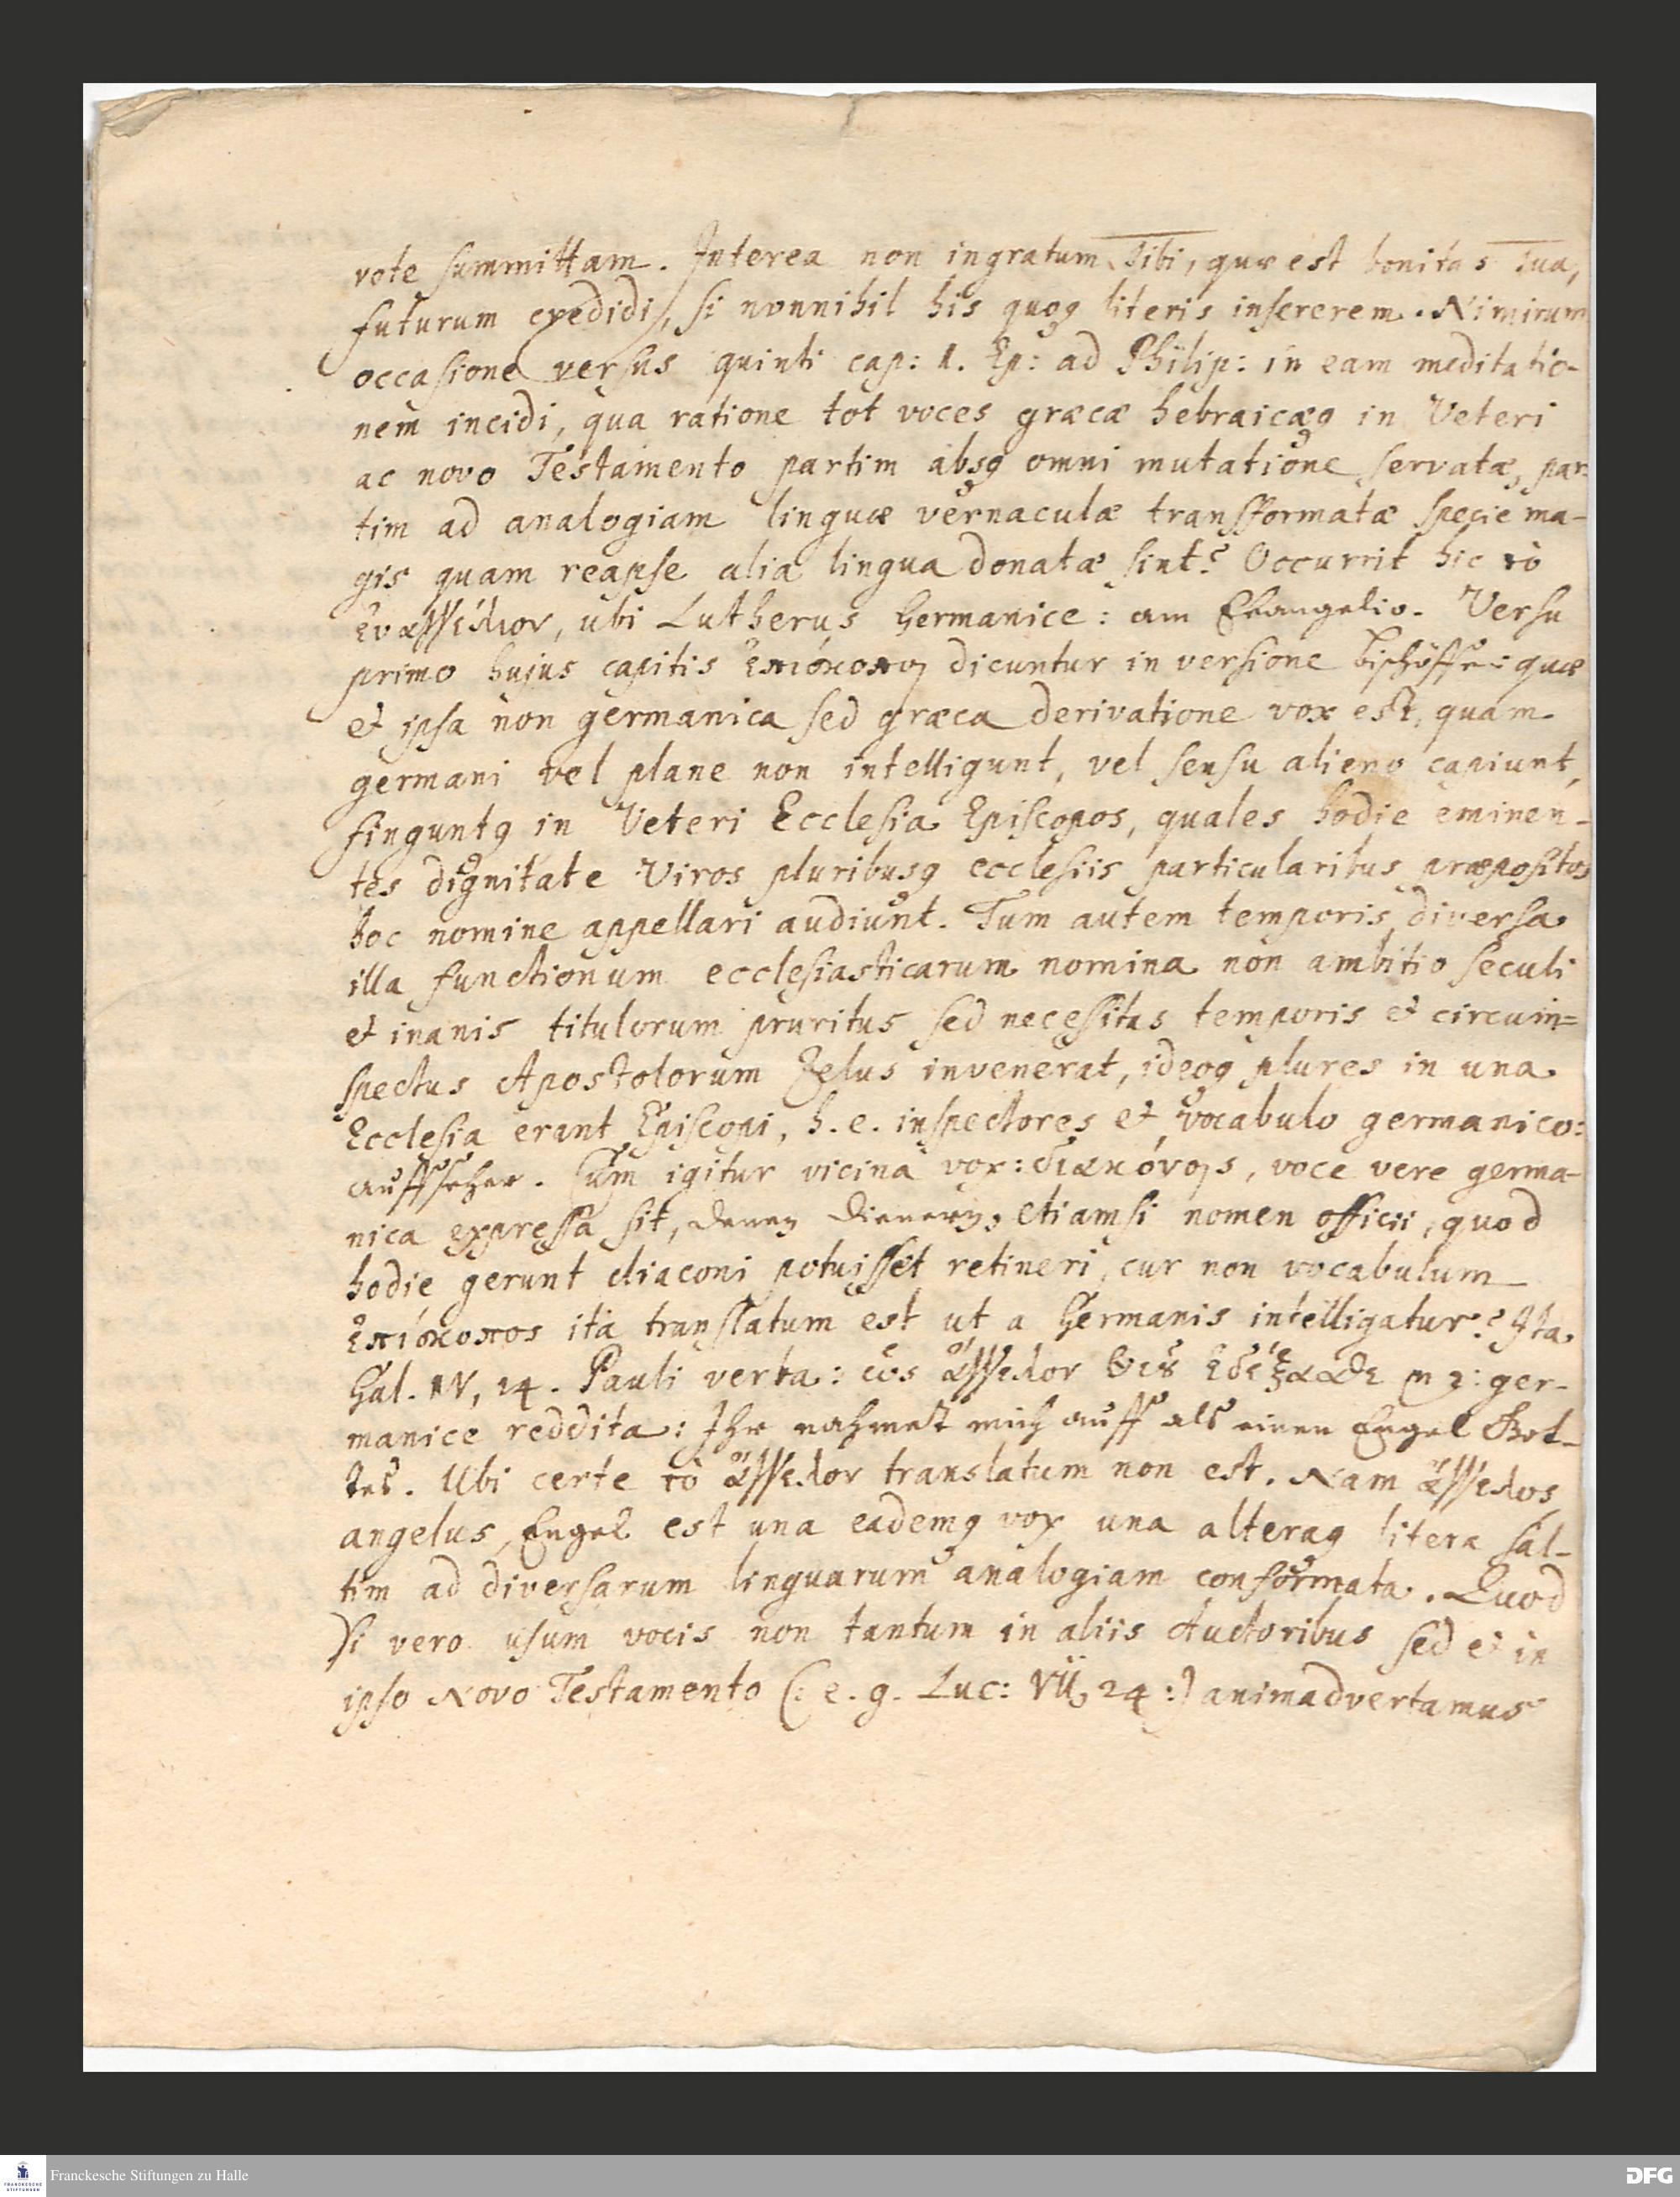 vote summittam. Interea non ingratum Tibi, quæ est bonitas Tua,
futurum credidi, si nonnihil his quoq literis insererem. Nimirum
occasione versus quinti cap: 1. Ep: ad Philip: in eam meditatio-
nem incidi, qua ratione tot voces græcæ hebraicæq in Veteri
ac novo Testamento partim absq omni mutatione servatæ, par-
tim ad analogiam linguæ vernaculæ transformatæ specie ma-
gis quam reapse alia lingua donatæ sint? Occurrit hic τὸ
ευαγγέλιον, ubi Lutherus Germanice: am Evangelio. Versu
primo hujus capitis ἐπισκοποι dicuntur in versione bischöffe: quæ
et ipsa non germanica sed græca derivatione vox est, quam
germani vel plane non intelligunt, vel sensu alieno capiunt,
finguntq in Veteri Ecclesia Episcopos, quales hodie eminen-
tes dignitate Viros pluribusq ecclesiis particularibus præpositos
hoc nomine appellari audiunt. Tum autem temporis diversa
illa functionum ecclesiasticarum nomina non ambitio seculi
et inanis titulorum pruritus sed necessitas temporis et circum=
spectus Apostolorum Zelus invenerat, ideoq plures in una
Ecclesia erant Episcopi, h. e. inspectores et vocabulo germanico:
auffseher. Cum igitur vicina vox: διακόνοις, voce vere germa-
nica expressa sit, denen Dienern, etiamsi nomen officii, quod
hodie gerunt diaconi potuisset retineri, cur non vocabulum
ἐπίσκοπος ita translatum est ut a Germanis intelligatur? Ita
Gal. IV, 14. Pauli verba: ὡς ἄγγελον Θεοῦ ἐδέξασθε με: ger-
manice reddita: Ihr nahmet mich auff als einen Engel Got-
tes. Ubi certe τὸ ἄγγελον translatum non est. Nam ἄγγελος,
angelus, Engel est una eademq vox una alteraq litera sal-
tim ad diversarum linguarum analogiam conformata. Quod
si vero usum vocis non tantum in aliis Auctoribus sed et in
ipso Novo Testamento (: e. g. Luc: VII, 24 :) animadvertamus
Franckesche Stiftungen zu Halle
FRANCKESCHE STIFTUNGEN
DFG